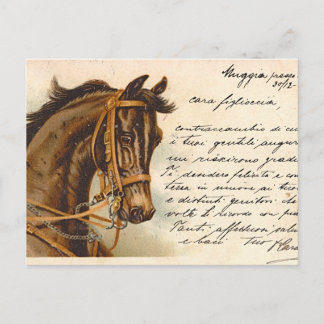 Muggia presso
30/12
cara figlioccia
contraccambio di cu
i tuoi gentili augur
mi riuscirono grade
Ti desidero felicità e con
tezza in unione ai tuoi
e distinti genitori. Che
volte li ricordo con pia
Tanti affettuosi salu
e baci. Tuo